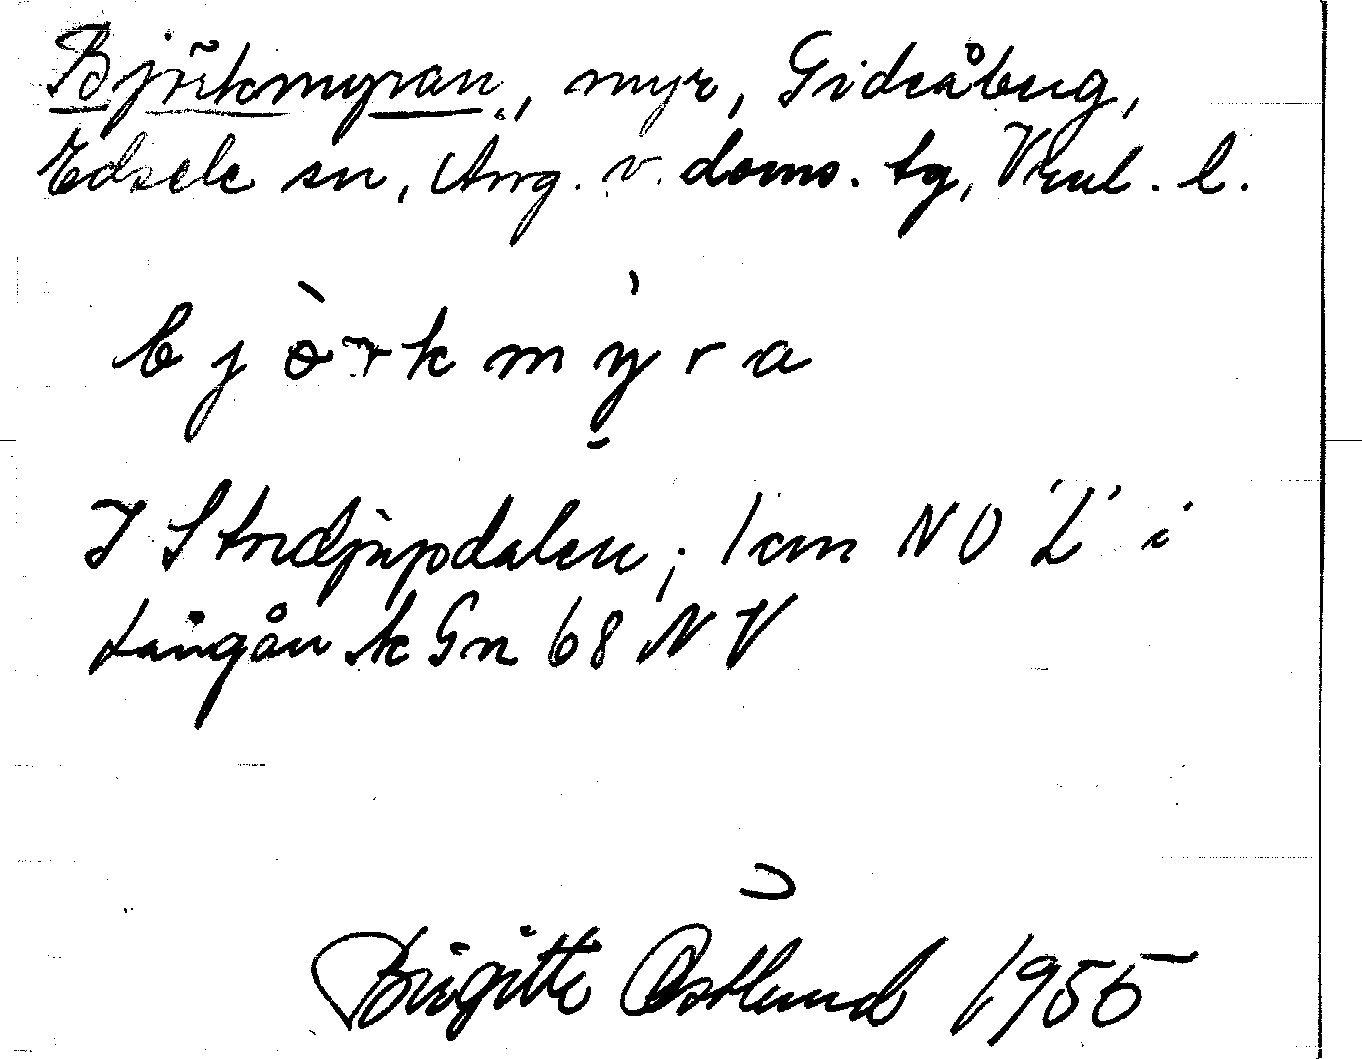 Björkmyran, myr, Gideåberg,
Edsele sn, Ång. v. doms. tg, Vnl. l.
b j ö r k m y r a
I Stordjupdalen; 1 cm NO "L" i
Långån k Gn 68 NV
Birgitte Östlund 1955